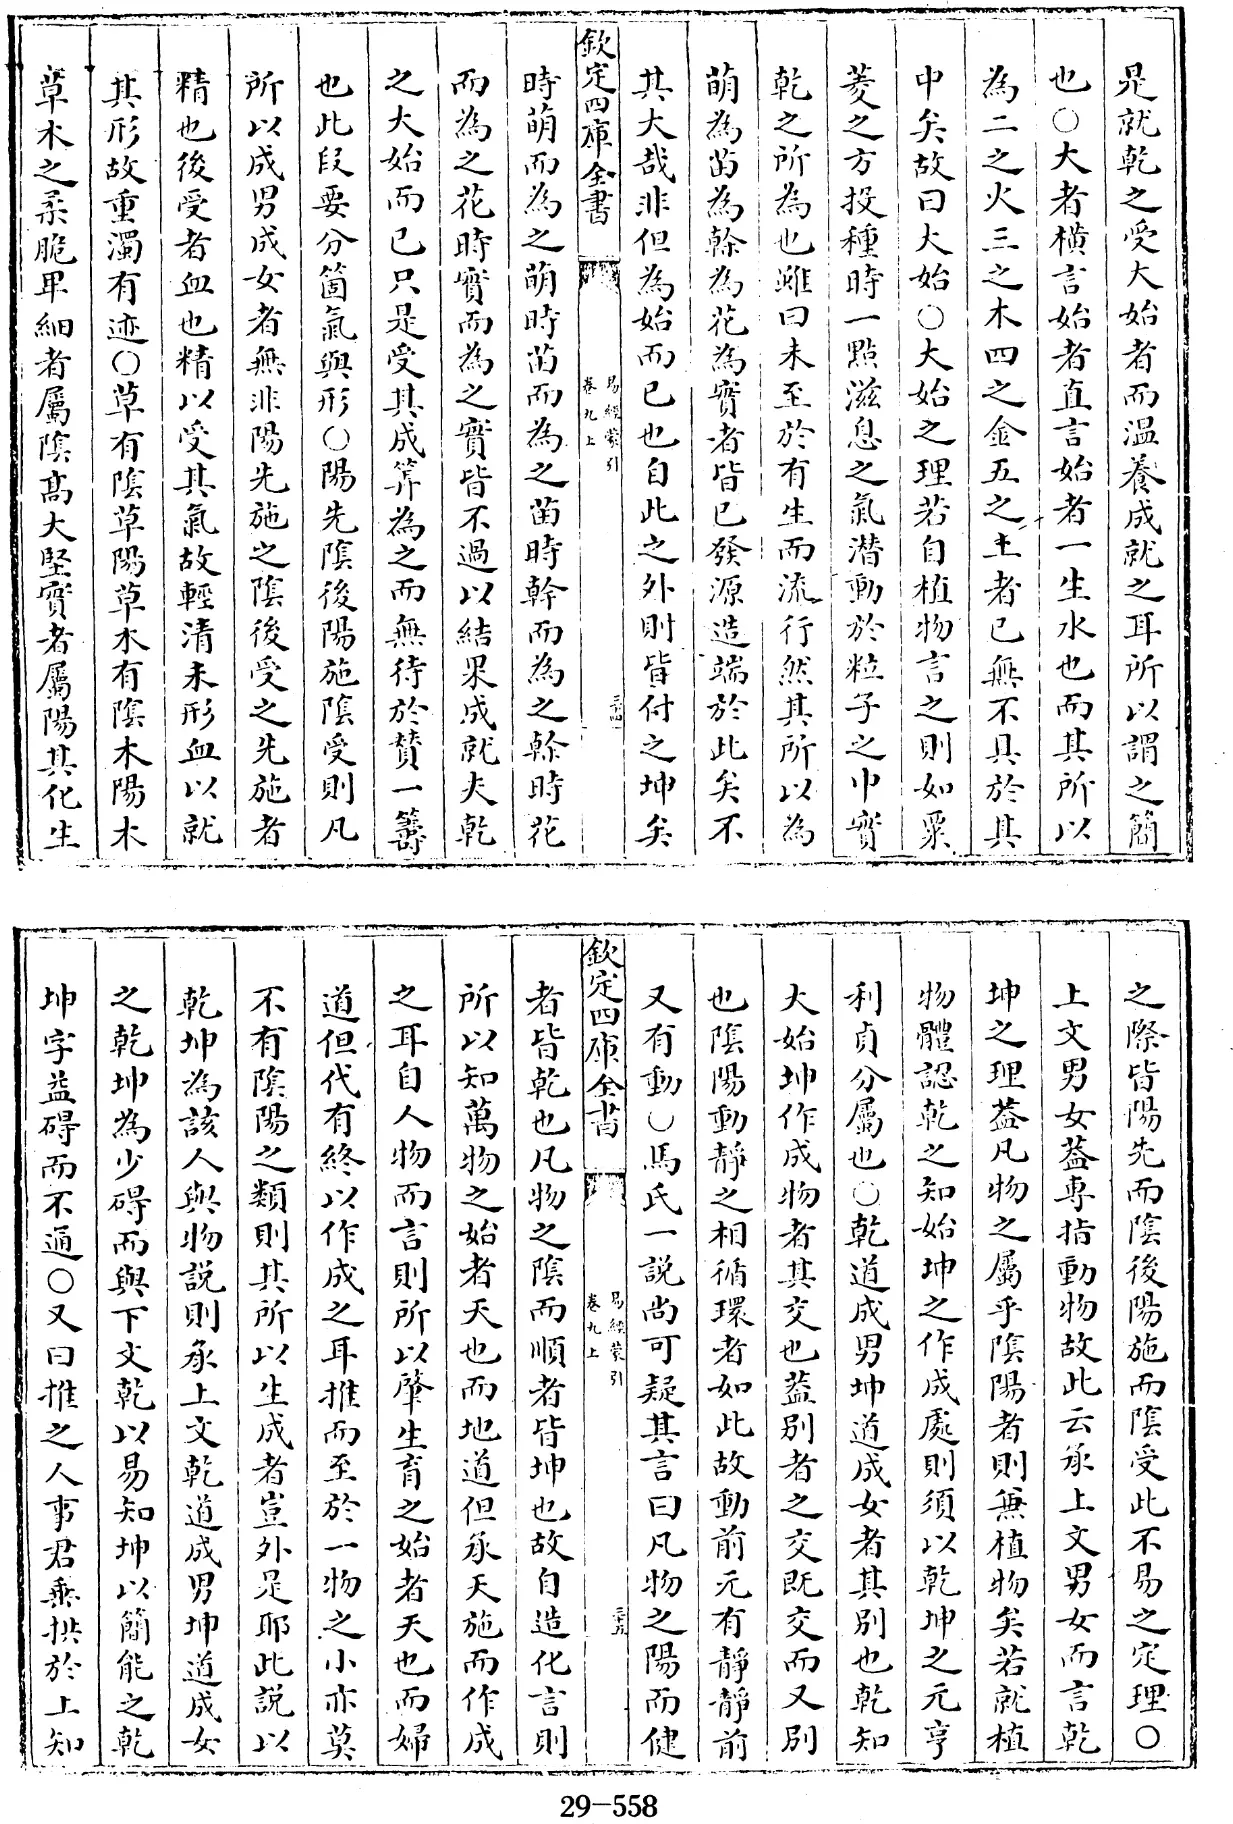 是就乾之受大始者而温養成就之耳所以謂之簡
也○大者横言始者直言始者一生水也而其所以
為二之火三之木四之金五之土者已無不具於其
中矣故曰大始○大始之理若自植物言之則如粟
菱之方投種時一㸃滋息之氣潜動於粒子之中實
乾之所為也雖曰未至於有生而流行然其所以為
萌為苗為幹為花為實者皆已發源造端於此矣不
其大哉非但為始而已也自此之外則皆付之坤矣
欽定四庫全書
易經蒙引
卷九上
三十四
時萌而為之萌時苗而為之苗時幹而為之幹時花
而為之花時實而為之實皆不過以結果成就夫乾
之大始而已只是受其成筭為之而無待於賛一籌
也此段要分箇氣與形○陽先陰後陽施陰受則凡
所以成男成女者無非陽先施之陰後受之先施者
精也後受者血也精以受其氣故輕清未形血以就
其形故重濁有迹○草有陰草陽草木有陰木陽木
草木之柔脆卑細者屬陰髙大堅實者屬陽其化生
之際皆陽先而陰後陽施而陰受此不易之定理○
上文男女葢専指動物故此云承上文男女而言乾
坤之理葢凡物之屬乎陰陽者則兼植物矣若就植
物體認乾之知始坤之作成處則須以乾坤之元亨
利貞分屬也○乾道成男坤道成女者其别也乾知
大始坤作成物者其交也葢别者之交既交而又别
也陰陽動靜之相循環者如此故動前元有靜靜前
又有動○馬氏一説尚可疑其言曰凡物之陽而健
欽定四庫全書
易經蒙引
卷九上
三十五
者皆乾也凡物之陰而順者皆坤也故自造化言則
所以知萬物之始者天也而地道但承天施而作成
之耳自人物而言則所以肇生育之始者天也而婦
道但代有終以作成之耳推而至於一物之小亦莫
不有陰陽之類則其所以生成者豈外是耶此説以
乾坤為該人與物説則承上文乾道成男坤道成女
之乾坤為少碍而與下文乾以易知坤以簡能之乾
坤字益碍而不通○又曰推之人事君垂拱於上知
29-558